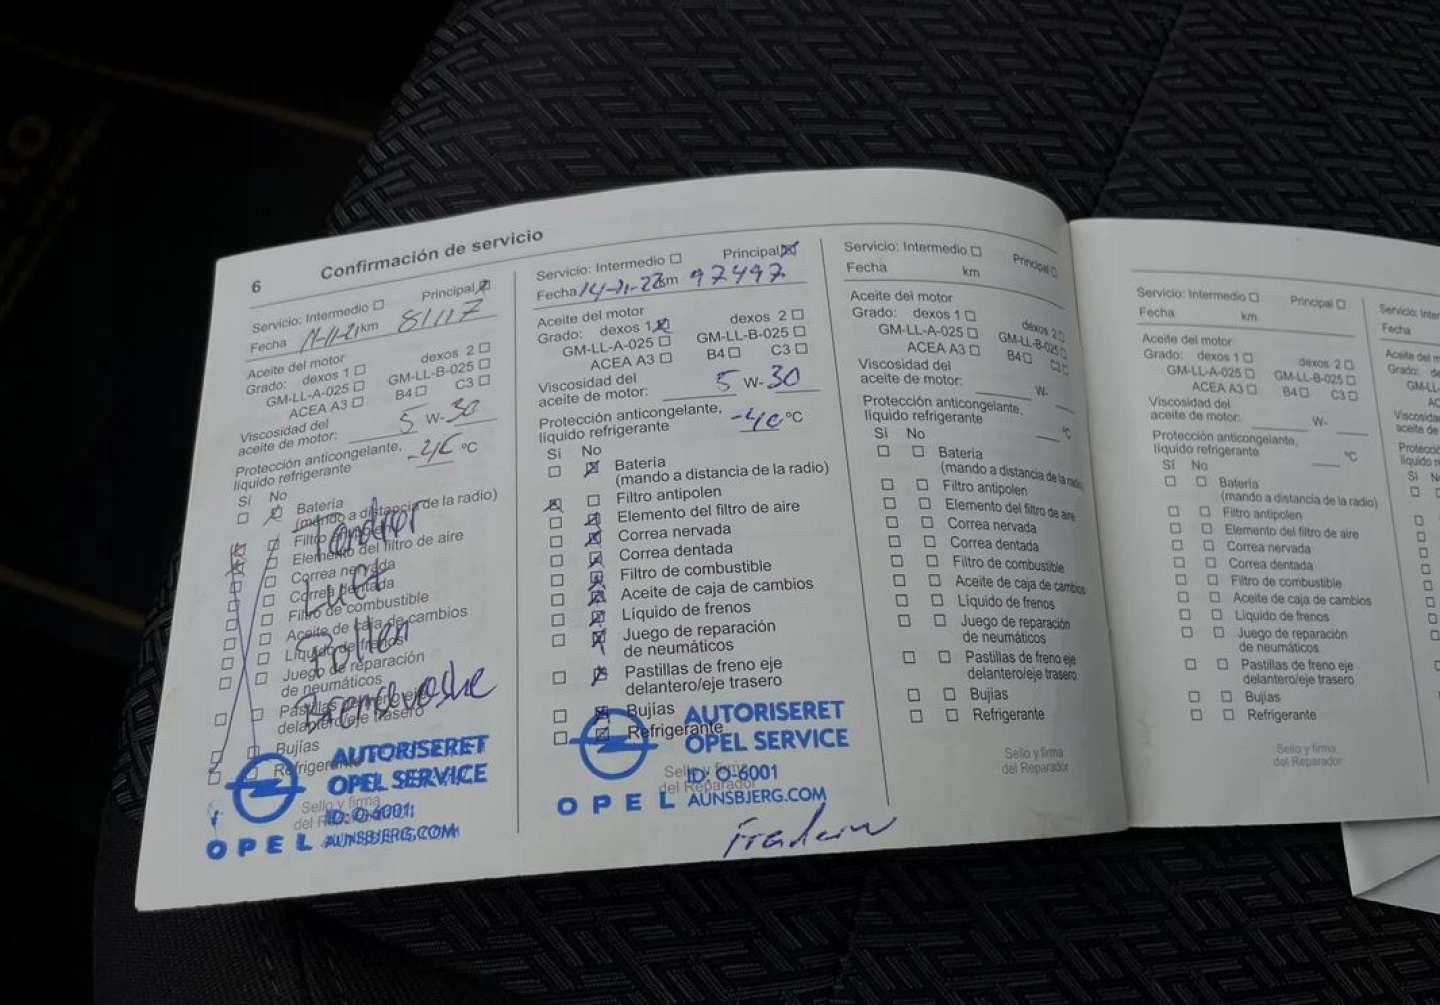 6
Confirmación de servicio
Servicio: Intermedio Principal
Fecha km 81117
Aceite del motor
Grado: dexos 1 dexos 2
GM-LL-A-025 GM-LL-B-025
ACEA A3 B4 C3
Viscosidad del
aceite de motor: 5 W-30
Protección anticongelante,
líquido refrigerante °C
Sí No
Batería
(mando a distancia de la radio)
Filtro
Elemento del filtro de aire
Correa nervada
Correa dentada
Filtro de combustible
Aceite de caja de cambios
Líquido de frenos
Juego de reparación
de neumáticos
Pastillas de freno eje
delantero/eje trasero
Bujías
Refrigerante
Luft
Pollen
Bremsvæske
AUTORISERET
OPEL SERVICE
Sello y firma
del
ID: O-6001
OPEL AUNSBJERG.COM
Servicio: Intermedio Principal
Fecha km 97497
Aceite del motor
Grado: dexos 1 dexos 2
GM-LL-A-025 GM-LL-B-025
ACEA A3 B4 C3
Viscosidad del
aceite de motor: 5 W-30
Protección anticongelante,
líquido refrigerante -40 °C
Sí No
Batería
(mando a distancia de la radio)
Filtro antipolen
Elemento del filtro de aire
Correa nervada
Correa dentada
Filtro de combustible
Aceite de caja de cambios
Líquido de frenos
Juego de reparación
de neumáticos
Pastillas de freno eje
delantero/eje trasero
Bujías
Refrigerante
AUTORISERET
OPEL SERVICE
Sello y firma
del Reparador
ID: O-6001
OPEL AUNSBJERG.COM
Servicio: Intermedio Principal
Fecha km
Aceite del motor
Grado: dexos 1 dexos 2
GM-LL-A-025 GM-LL-B-025
ACEA A3 B4 C3
Viscosidad del
aceite de motor: W-
Protección anticongelante,
líquido refrigerante °C
Sí No
Batería
(mando a distancia de la radio)
Filtro antipolen
Elemento del filtro de aire
Correa nervada
Correa dentada
Filtro de combustible
Aceite de caja de cambios
Líquido de frenos
Juego de reparación
de neumáticos
Pastillas de freno eje
delantero/eje trasero
Bujías
Refrigerante
Sello y firma
del Reparador
Servicio: Intermedio Principal
Fecha km
Aceite del motor
Grado: dexos 1 dexos 2
GM-LL-A-025 GM-LL-B-025
ACEA A3 B4 C3
Viscosidad del
aceite de motor: W-
Protección anticongelante,
líquido refrigerante °C
Sí No
Batería
(mando a distancia de la radio)
Filtro antipolen
Elemento del filtro de aire
Correa nervada
Correa dentada
Filtro de combustible
Aceite de caja de cambios
Líquido de frenos
Juego de reparación
de neumáticos
Pastillas de freno eje
delantero/eje trasero
Bujías
Refrigerante
Sello y firma
del Reparador
Servicio:
Fecha
Aceite del
Grado:
aceite de
Sí